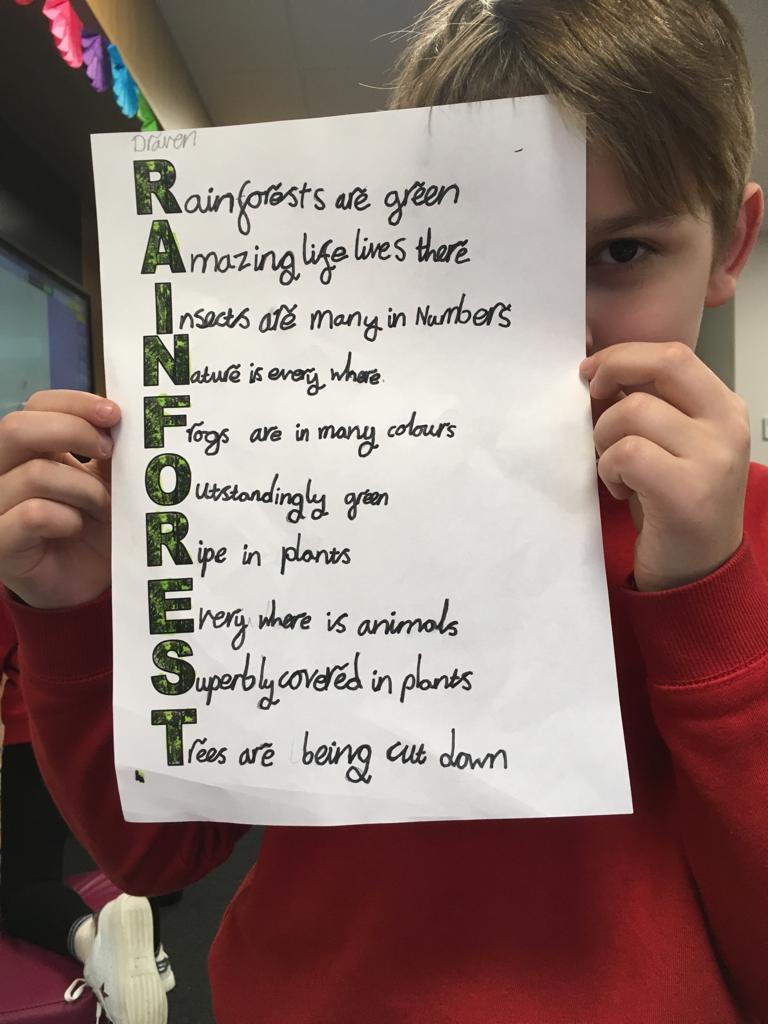 Draven
Rainforests are green
Amazing life lives there
Insects are many in Numbers
Nature is every where.
Frogs are in many colours
Outstandingly green
Ripe in plants
Every where is animals
Superbly covered in plants
Trees are being cut down